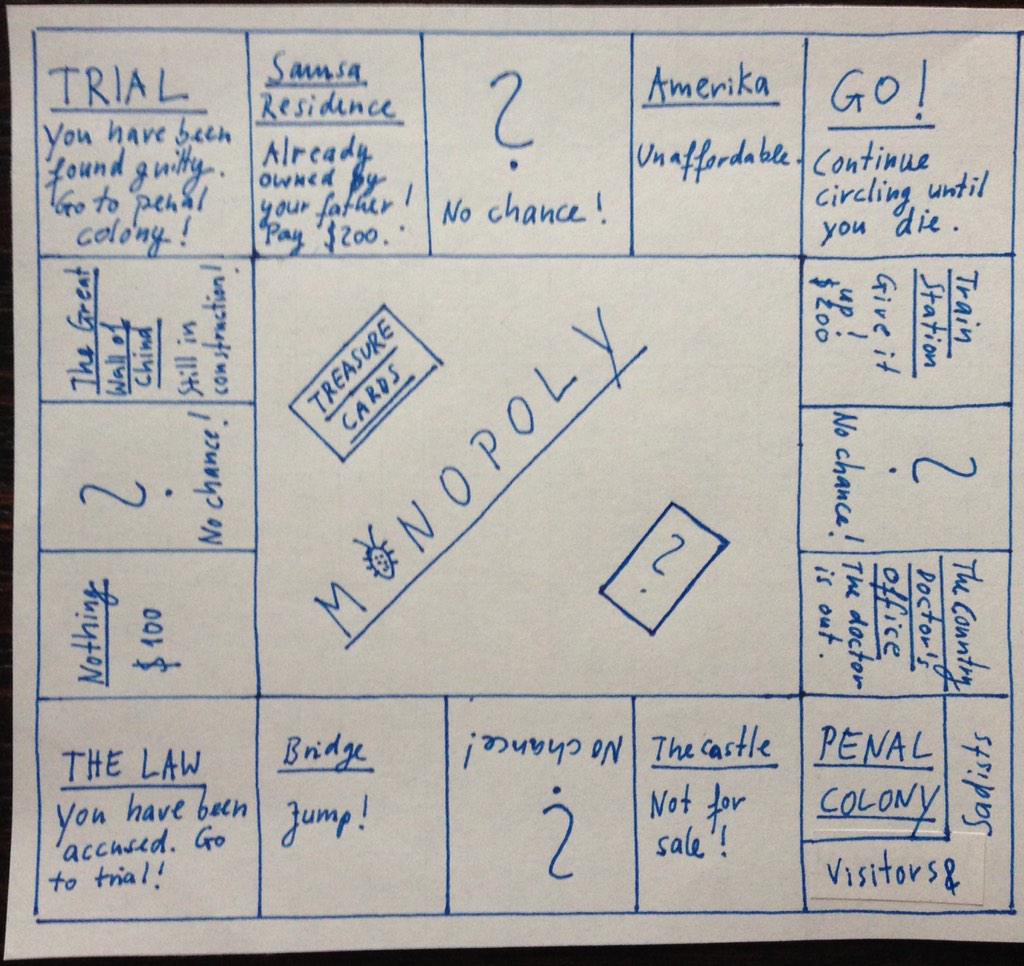 TRIAL
you have been
found guilty.
Go to penal
colony!
Samsa
Residence
Already
owned by
your father!
Pay $200.
?
No chance!
Amerika
Unaffordable.
GO!
Continue
circling until
you die.
The Great
Wall of
China
Still in
construction!
Train
Station
Give it
up!
$200
TREASURE
CARDS
MONOPOLY
?
?
No chance!
?
No chance!
Nothing
$100
The Country
Doctor's
Office
The doctor
is out.
THE LAW
You have been
accused. Go
to trial!
Bridge
Jump!
No chance!
?
The castle
Not for
sale!
PENAL
COLONY
Visitors &
Sadists